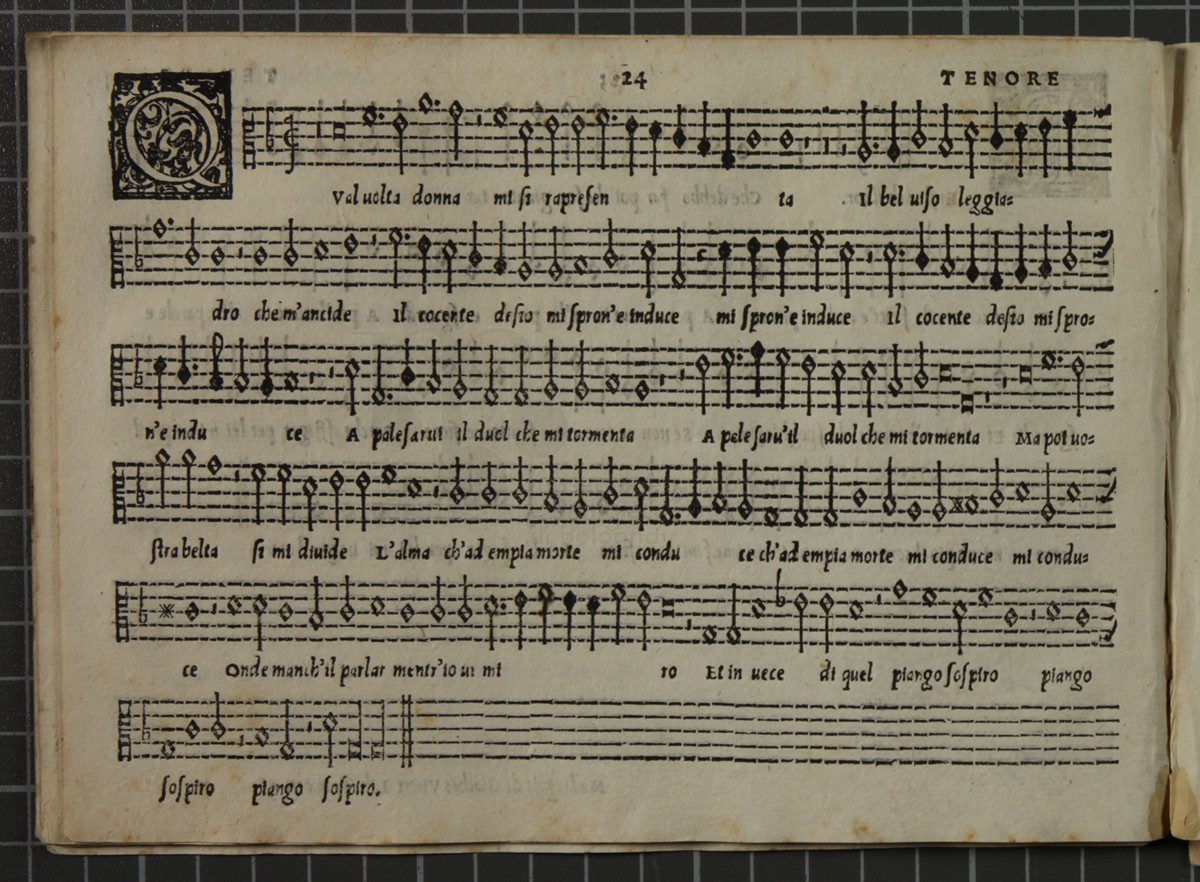 24 TENORE
QVal uolta donna mi si rapresen ta Il bel uiso leggia=
dro che m'ancide Il cocente desio mi spron'e induce mi spron'e induce Il cocente desio mi spro=
n'e indu ce A palesarui il duol che mi tormenta A palesaru'il duol che mi tormenta Ma poi uo=
stra belta si mi diuide L'alma ch'ad empia morte mi condu ce ch'ad empia morte mi conduce mi condu=
ce Onde manch'il parlar mentr'io ui mi ro Et in uece di quel piango sospiro piango
sospiro piango sospiro.